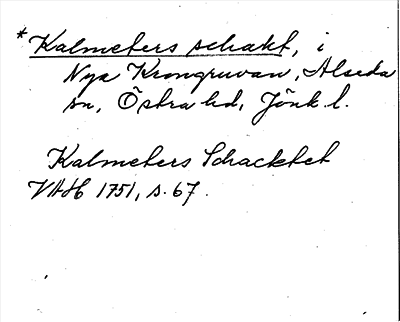 *Kalmeters schakt, i
Nya Krongruvan, Alseda
sn, Östra hd, Jönk l.
Kalmeters Schacktet
VAH 1751, s. 67.